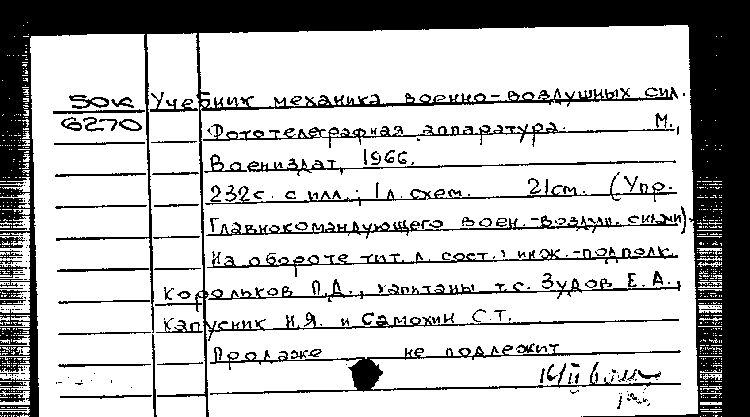 50к Учебник механика военно-воздушных сил.
6270 Фототелеграфная аппаратура. М.,
Воениздат, 1966.
232 с. с илл.; 1 л. схем. 21 см. (Упр.
Главнокомандующего воен.-воздуш. силами).
На обороте тит. л. сост.: инж.-подполк.
Корольков П.Д., капитаны т.с. Зудов Е.А.,
Капусник Н.Я. и Самохин С.Т.
Продаже не подлежит
16/II